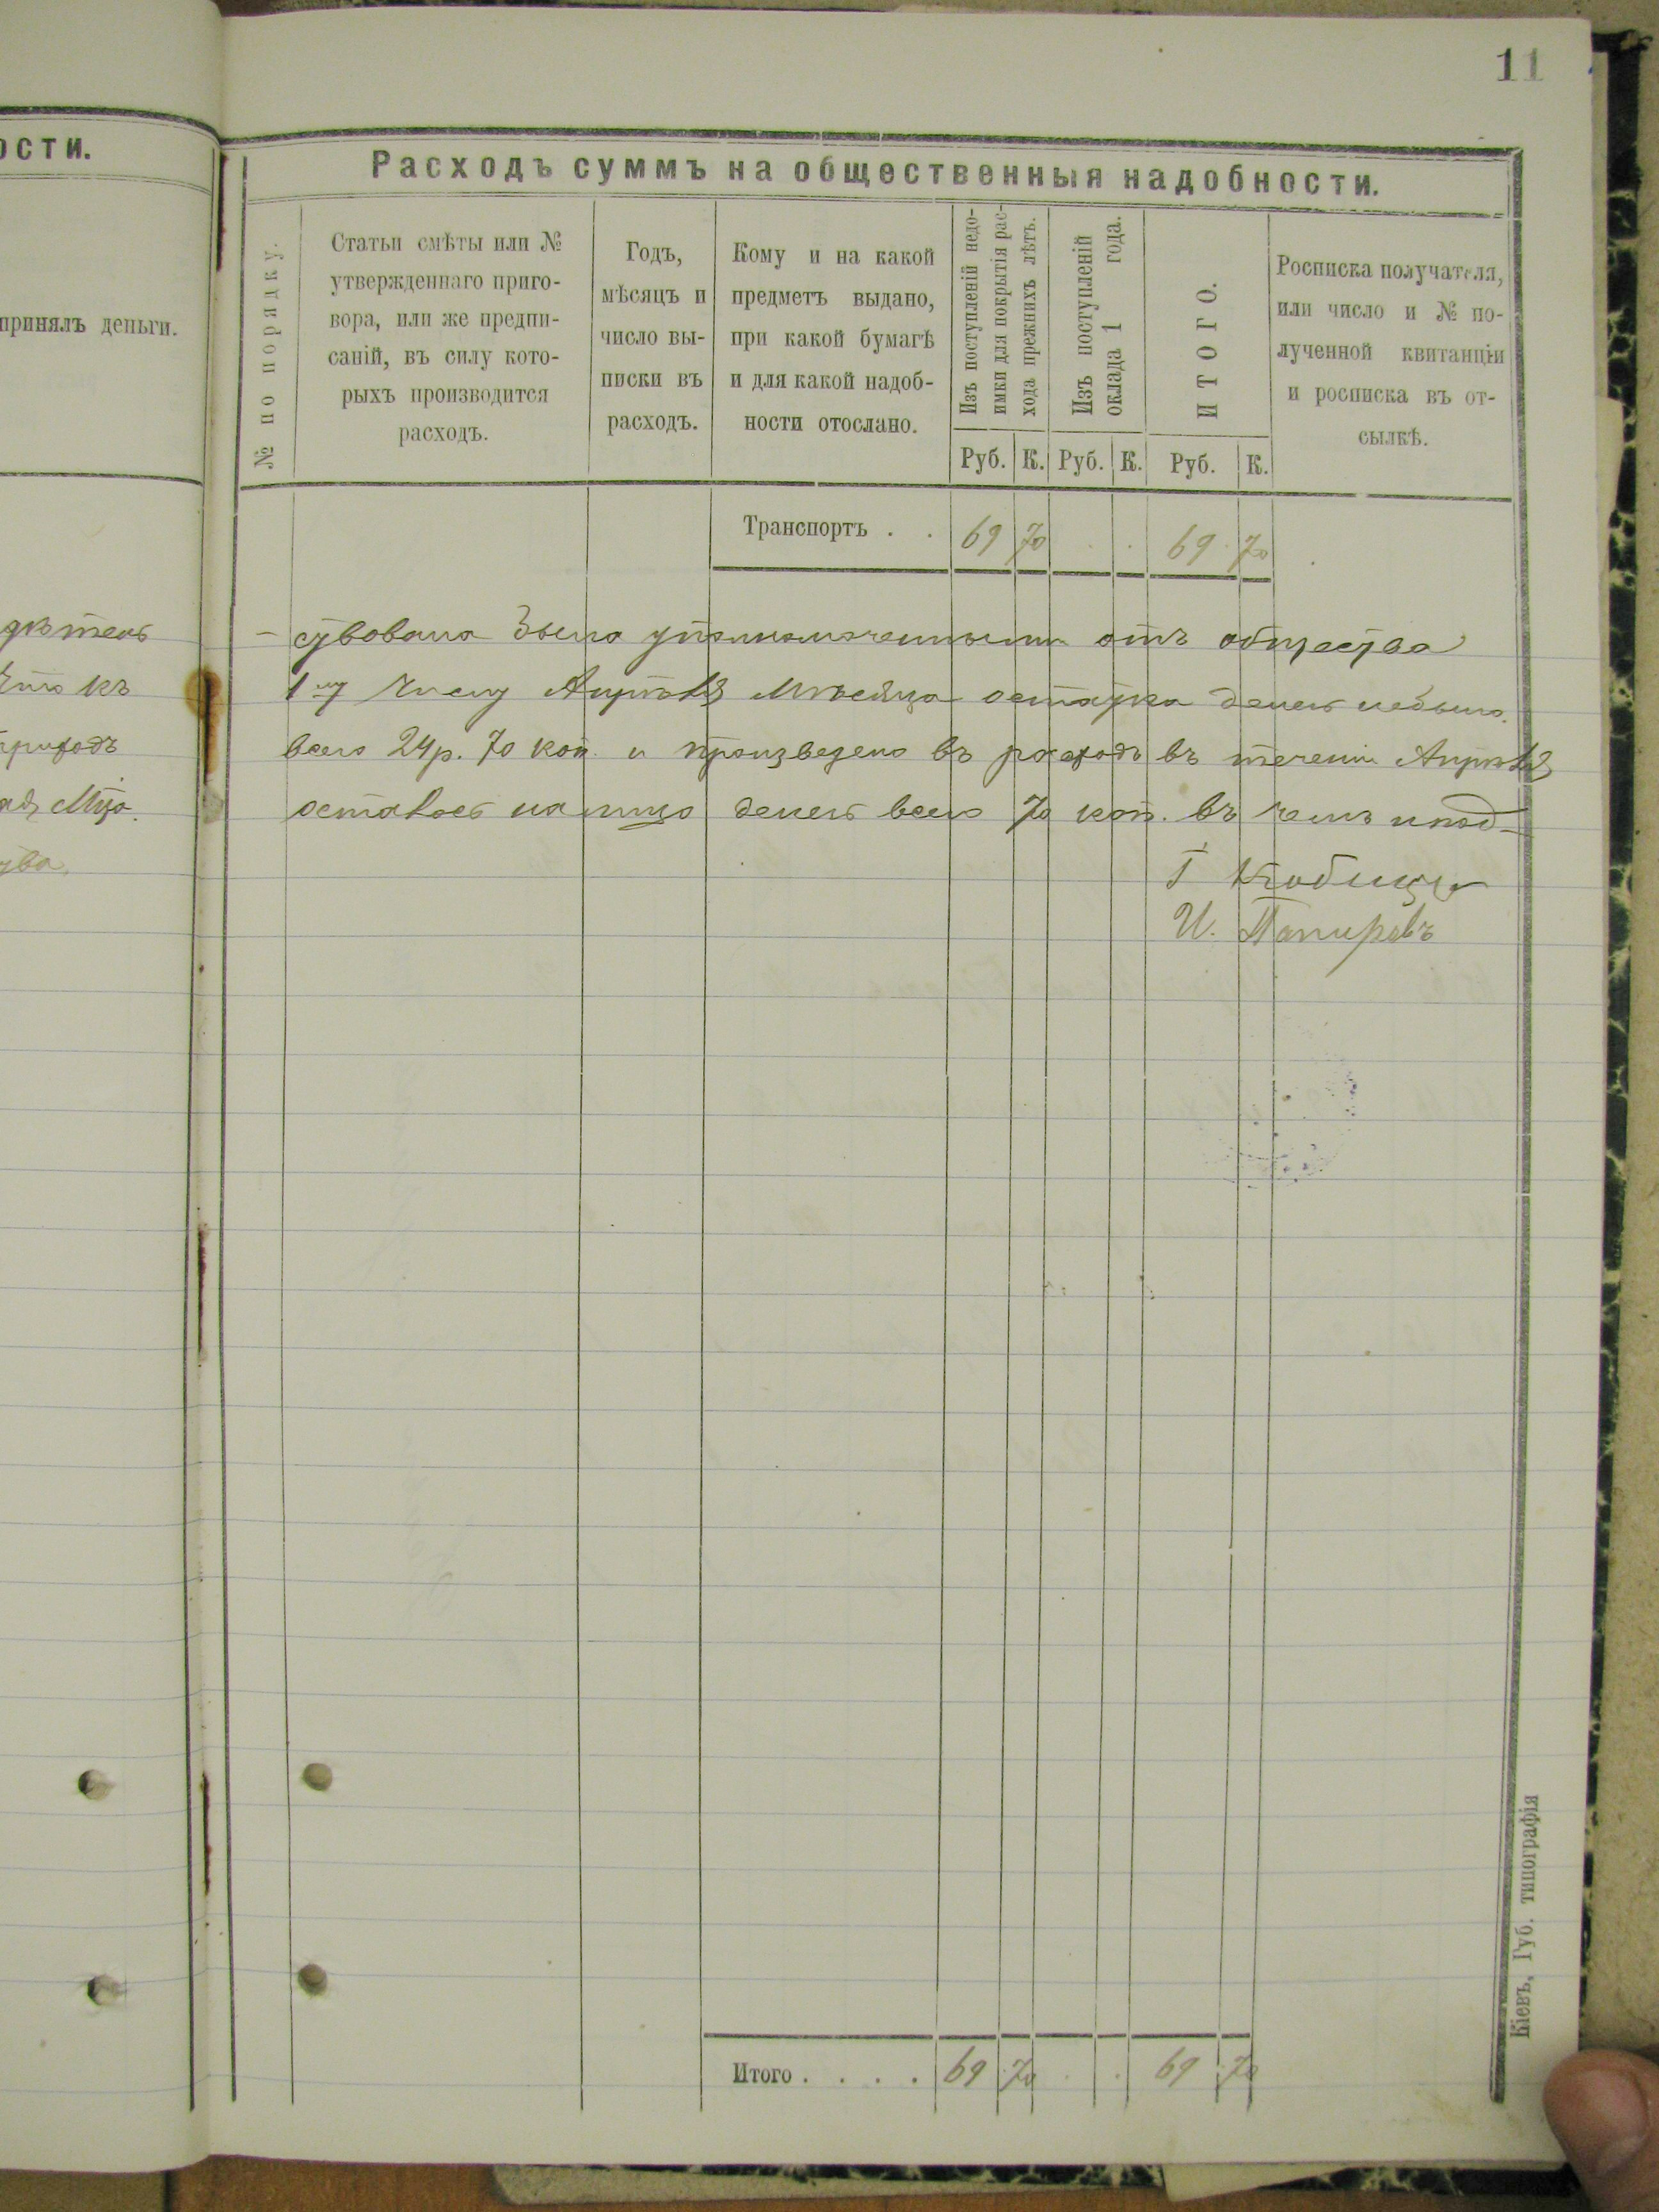 11
ости.
принялъ деньги.
дѣтель
что къ
приходъ
Мца.
ва,
Расходъ суммъ на общественныя надобности.
№ по порядку.
Статьи смѣты или №
утвержденнаго приго-
вора, или же предпи-
саній, въ силу кото-
рыхъ производится
расходъ.
Годъ,
мѣсяцъ и
число вы-
писки въ
расходъ.
Кому и на какой
предметъ выдано,
при какой бумагѣ
и для какой надоб-
ности отослано.
Изъ поступленій недо-
имки для покрытія рас-
хода прежнихъ лѣтъ.
Изъ поступленій
оклада 1 года.
ИТОГО.
Росписка получателя,
или число и № по-
лученной квитанціи
и росписка въ от-
сылкѣ.
Руб. К. Руб. К. Руб. К.
Транспортъ . . 69 70 . . 69 70
– ствовала была уполномоченными отъ общества
1му числу Апрѣля Мѣсяца остатка денегъ небыло.
всего 24р. 70 коп. и произведено въ расходъ въ теченіи Апрѣля
осталось налицо денегъ всего 70 коп. въ чемъ и под-
Г
И. Папировъ
Итого . . . . 69 70 . . 69 70
Кіевъ, Губ. типографія